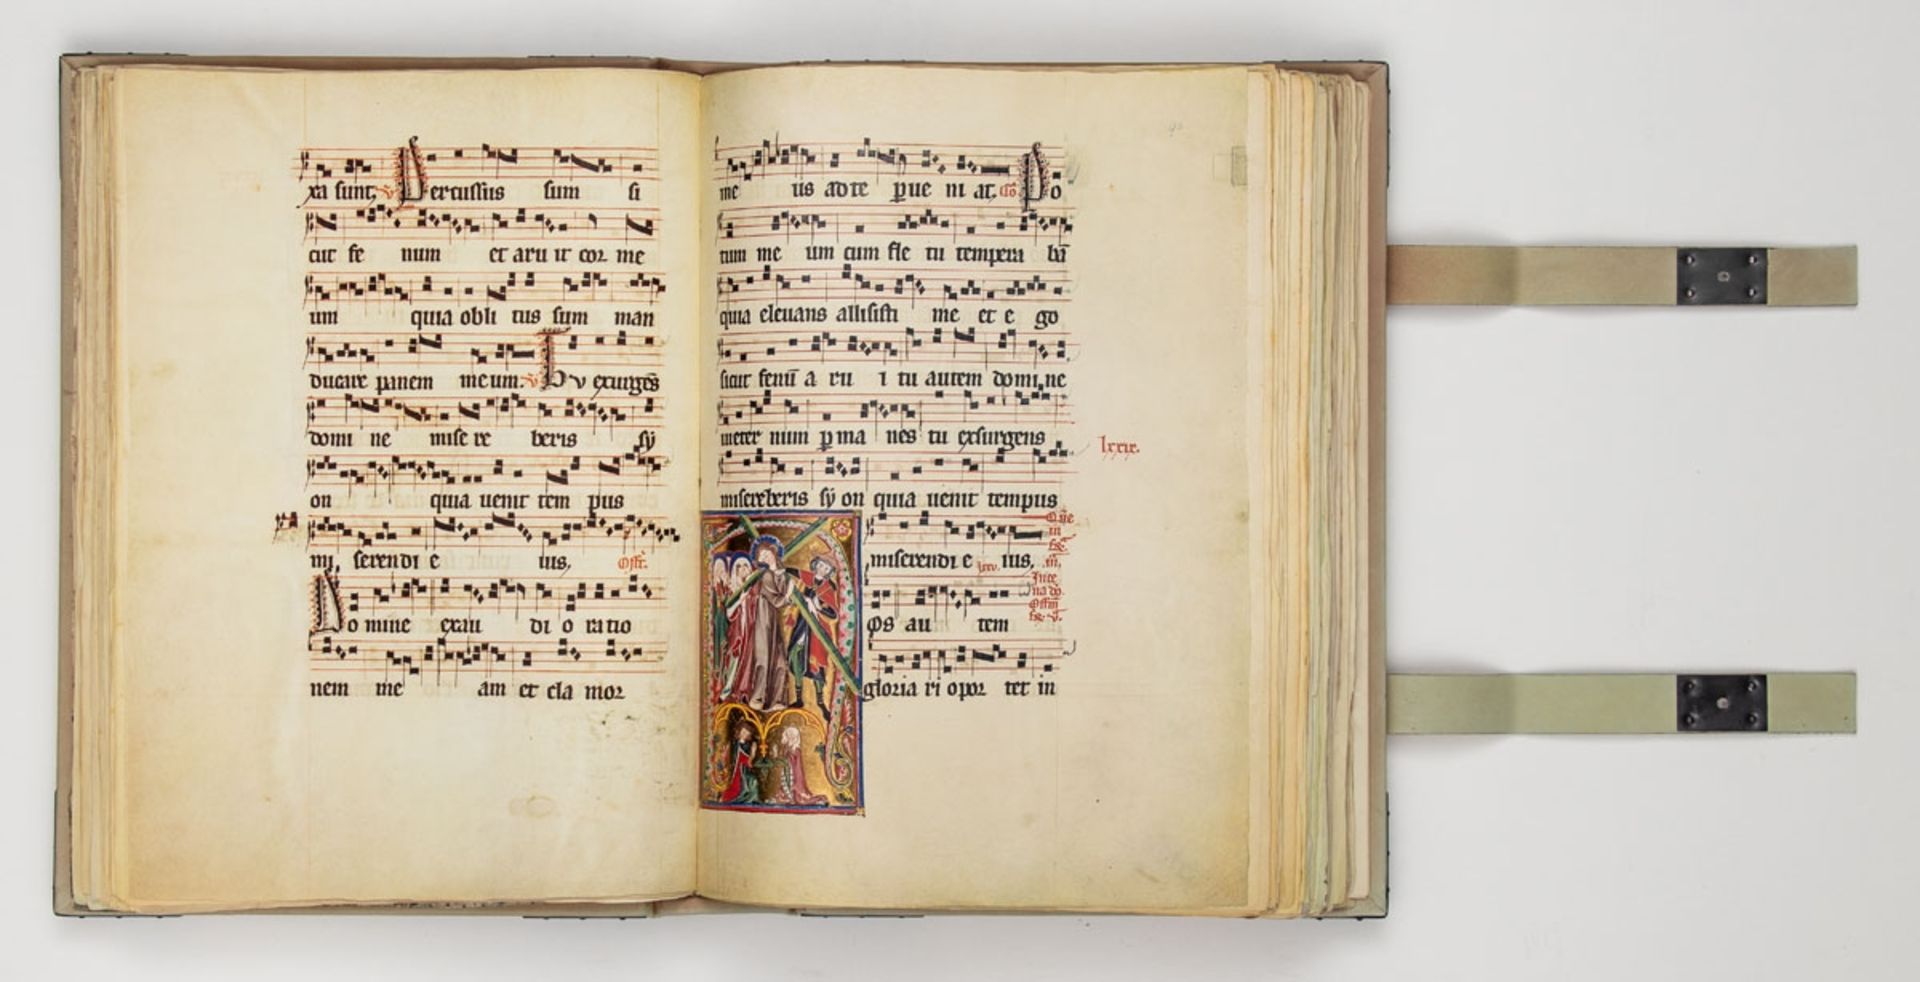 xa sunt, Percussus sum si
cut fe num et aru it cor me
um quia obli tus sum man
ducare panem meum. Tv exurges
domi ne mise re beris sÿ
on quia uenit tem pus
mi serendi e ius, Offr.
Do mine exau di o ratio
nem me am et cla mor
me us ad te pue ni at. Co Po
tum me um cum fle tu tempera ba
quia eleuans allisisti me et e go
sicut fenu a ru i tu autem domine
ineter num pma nes tu exsurgens
lxxix.
misereberis sÿ on quia uenit tempus
miserendi e ius,
os au tem
gloria ri opor tet in